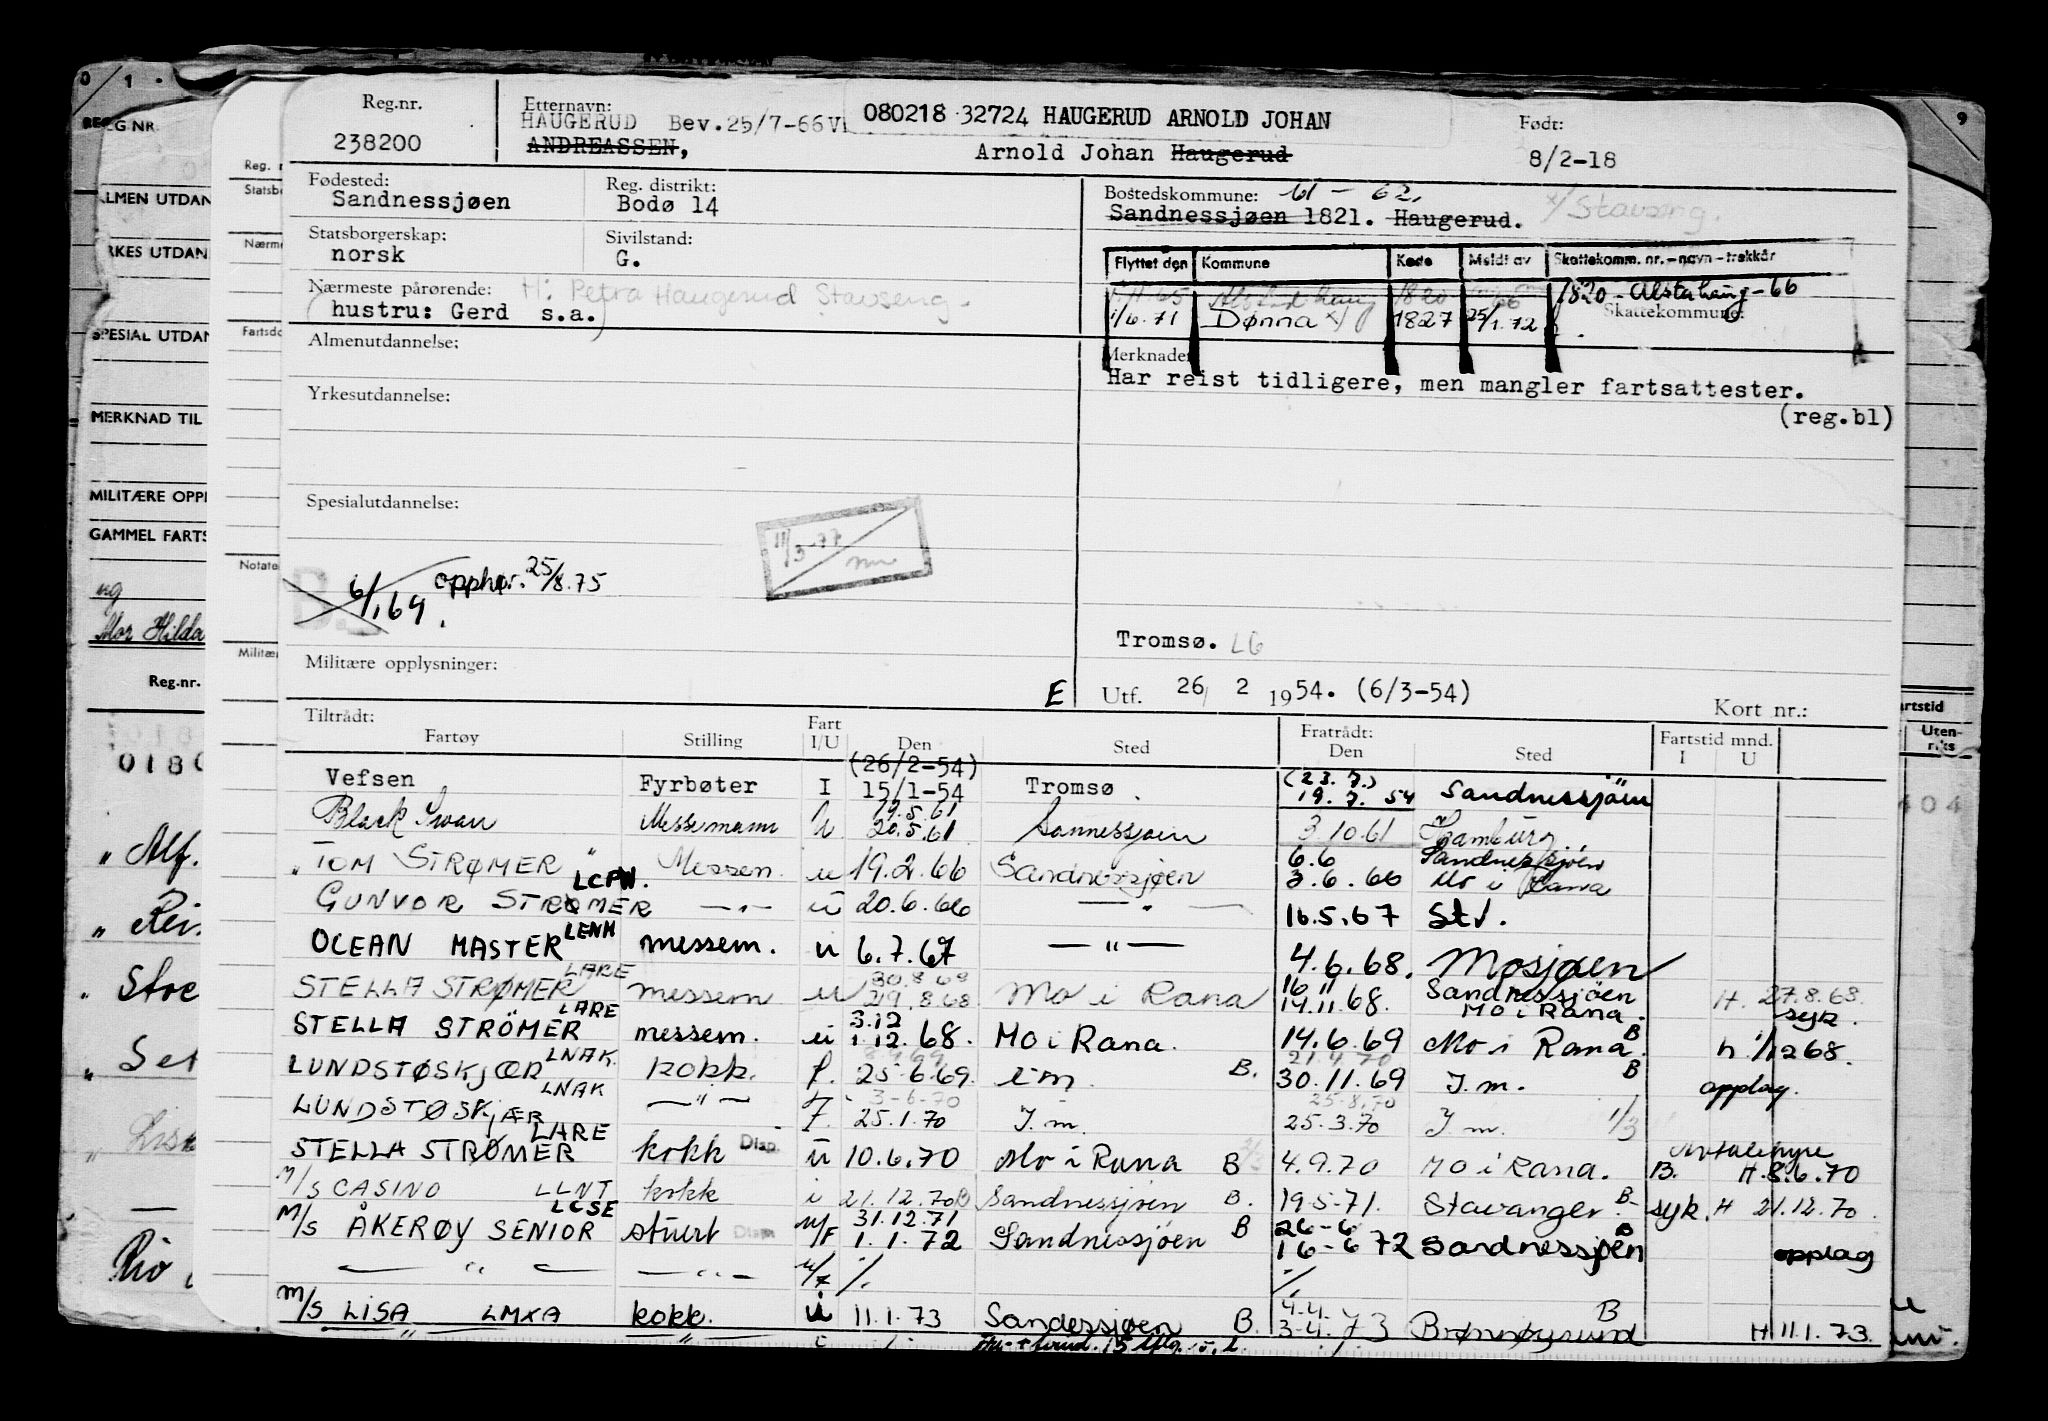 Reg.nr.
238200
Etternavn:
HAUGERUD Bev.25/7-66
080218 32724 HAUGERUD ARNOLD JOHAN
ANDREASSEN,
Arnold Johan Haugerud
Født:
8/2-18
Fødested:
Sandnessjøen
Reg. distrikt:
Bodø 14
Bostedskommune: 61 - 62.
Sandnessjøen 1821. Haugerud.
x/ Stavseng.
Statsborgerskap:
norsk
Sivilstand:
G.
Flyttet den Kommune Kode Meldt av Skattekomm. nr. - navn - trekkår
Nærmeste pårørende: H: Petra Haugerud Stavseng.
(hustru: Gerd s.a.)
1820 - Alstahaug - 66
1/6.71 Dønna x/ 1827 25/1.72
Skattekommune:
Almenutdannelse:
Merknader
Har reist tidligere, men mangler fartsattester.
(reg.bl)
Yrkesutdannelse:
Spesialutdannelse:
11/3-77
6/1.64. opphør. 25/8.75
Tromsø. LG
Militære opplysninger:
E
Utf. 26/ 2 1954. (6/3-54)
Kort nr.:
Tiltrådt:
Fartøy Stilling Fart I/U Den Sted
Fratrådt:
Den Sted Fartstid mnd. I U
(26/2-54) (23.7.)
Vefsen Fyrbøter I 15/1-54 Tromsø 19.7.54 Sandnessjøen
19.5.61
Black Swan Messemann U 20.5.61 Sannessjøen 3.10.61 Hamburg.
6.6 Sandnessjøen
"TOM STRØMER" Messem. u 19.2.66 Sandnessjøen 3.6.66 Mo i Rana
LCPW.
GUNVOR STRØMER — " — u 20.6.66 — " — 16.5.67 Stv.
LENM
OCEAN MASTER messem. u 6.7.67 — " — 4.6.68. Mosjøen
LARE 30.8.68 16 11 Sandnessjøen
STELLA STRØMER messem u 29.8.68 Mo i Rana 14.11.68. Mo i Rana. H. 27.8.68. syk.
LARE 3.12
STELLA STRÖMER messem. u 1.12.68. Mo i Rana. 14.6.69 Mo i Rana. B h. 1/12 68.
LNAK. 21.4.70
LUNDSTØSKJÆR kokk. f. 25.6.69. I m. B. 30.11.69 I.m. B opplag.
LNAK 3-6-70 25.8.70
LUNDSTØSKJÆR — " — F. 25.1.70 I.m. 25.3.70 I m. 1/3
LARE Avtalehyre
STELLA STRØMER kokk Disp. u 10.6.70 Mo i Rana B 4.9.70 Mo i Rana. B. H.8.6.70
M/S CASINO LLNT kokk i 21.12.70 Sandnessjøen B. 19.5.71. Stavanger. B- syk. H 21.12.70.
LCSE 31.12.71 26-6
M/S ÅKERØY SENIOR stuert Disp u/F 1.1.72 Sandnessjøen B 16-6 72 Sandnessjøen B opplag
— " — — " — u/f /. /.
4-4.
M/S LISA LMXA kokk. u 11.1.73 Sandessjøen B. 3-4.73 Brønnøysund B H 11.1.73.
0 1
REG NR.
ALMEN UTDAN
YRKES UTDAN
SPESIAL UTDAN
MERKNAD TIL
MILITÆRE OPPL
GAMMEL FARTS
Mor Hilda
Reg.nr.
0180
" Alf.
Rio
Reg. n
Statsbo
Nærme
Fartsdo
Notate
Militær
9
artstid
Uten-
riks
404